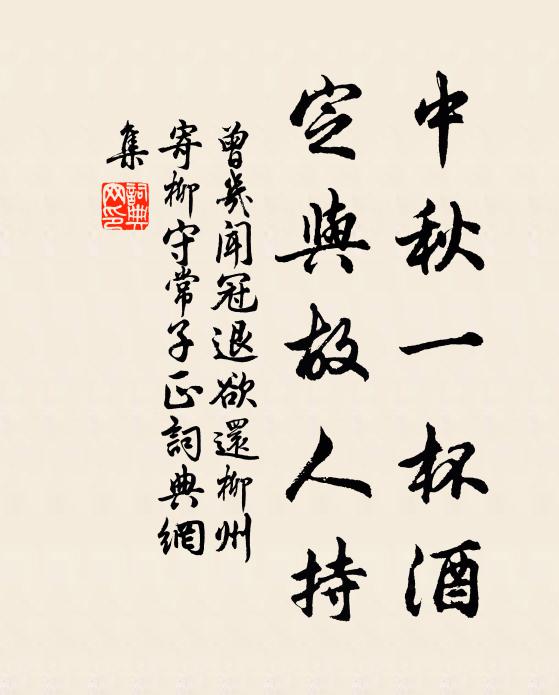 中秋一杯酒
定與故人持
曾幾聞冠退欲還柳州
寄柳守常子正詞典網
集
詞典
网印